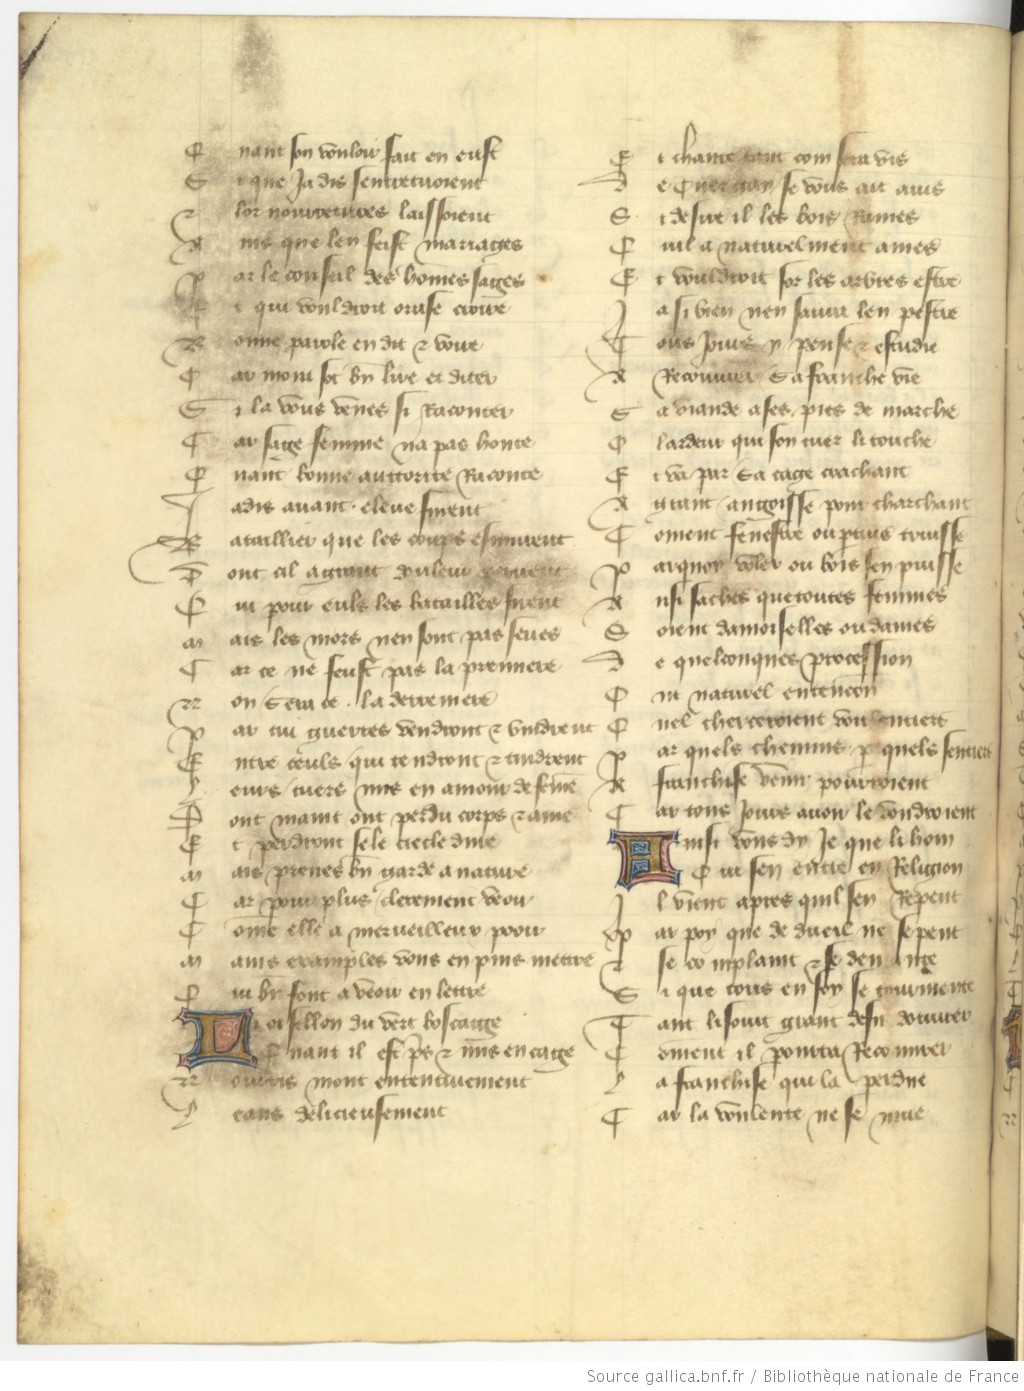 Q nant son vouloir fait en eust
S i que Jadis sentretuoient
E lor nourretures laissoient
A ins que len feist mariages
P ar le conseil des hommes sages
E t qui vouldroit orase croire
B onne parole en dit & voire
C ar mont sot bn lire et diter
S i la vous venes si Raconter
C ar sage femme na pas honte
Q nant bonne auttorite Raconte
I adis auant eleue furent
B ataillier que les coups esmurent
D ont cil a grant douleur
Q ui pour euls les batailles firent
M ais les mors nen sont pas seues
C ar ce ne feust pas la premiere
N on sera ce la derreniere
P ar cui guerres vendront & vindrent
E ntre ceuls qui tendront & tindrent
L eurs cuers mis en amour de feme
D ont maint ont perdu corps & ame
E t perdront se le ciecle dure
M ais prenes bn garde a nature
C ar pour plus clerement veoir
C ome elle a merueilleux pooir
M ains examples vous en puis mettre
Q ui bn font a veoir en lettre
L i oisellon du vert boscaige
Q nant il est pris & mis en cage
N ourris mont ententiuement
L eans delicieusement
E t chante tant com sera vis
D e cuer gay se vous ait auis
S i desire il les bois Rames
Q uil a naturelment ames
E t vouldroit sor les arbres estre
J a si bien nen saura len pestre
T ous Jours y pense & estudie
A Recouurer sa franche vie
S a viande a ses pies de marche
O lardeur qui son cuer li touche
E t va par sa cage cerchant
A grant angoisse pour charchant
C oment fenestre ou ptuis truisse
P ar quoy voler ou bois sen puisse
A nsi saches que toutes femmes
S oient damoiselles ou dames
D e quelconques procession
O nt naturel entencon
Q uel chercheroient voulentiers
P ar quels chemins p quels sentiers
A franchise venir pourroient
C ar tous Jours auoir le voudroient
A insi vous dy Je que li hom
Q ui sen entre en Religion
J l vient apres quil sen Repent
P ar poy que de dueil ne se pent
E se complaint & se demente
S i que tous en soy se tourmente
T ant li sourt grant desir douurer
C oment il pourra Recouurer
L a franchise qui la perdue
C ar la voulente ne se mue